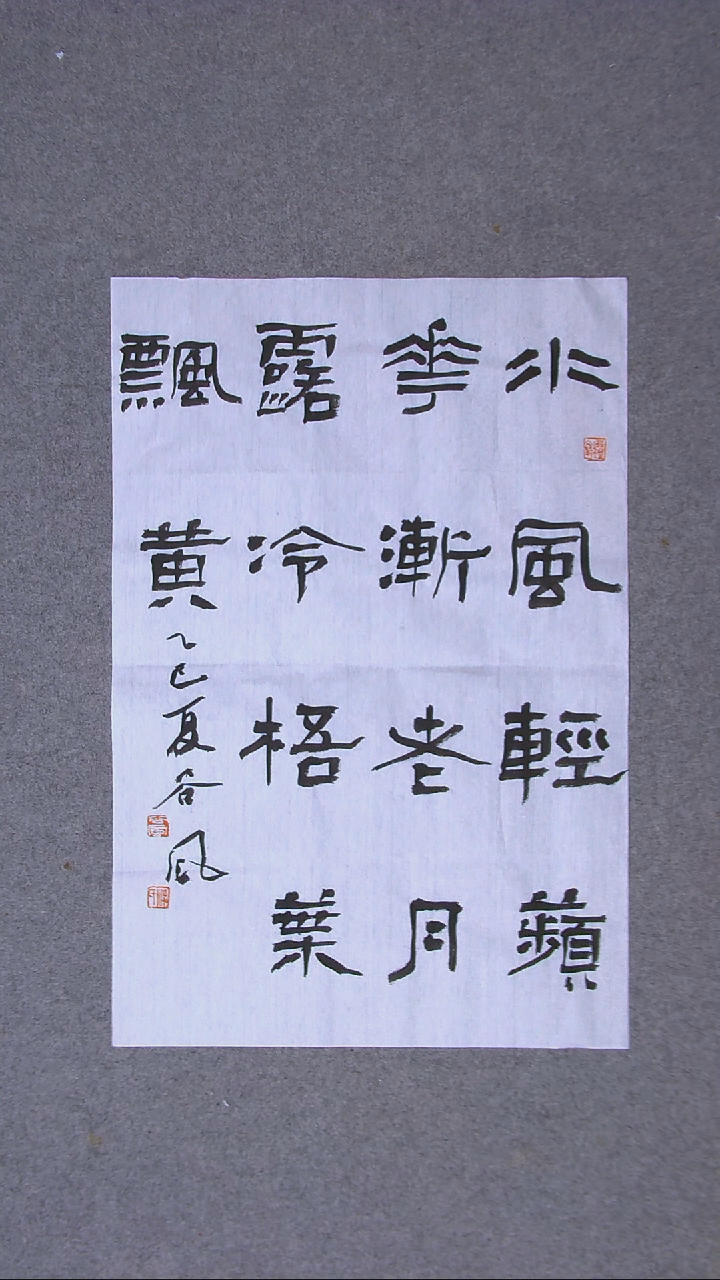 水風輕蘋
華漸老月
露冷梧葉
飄黄乙巳夏谷風